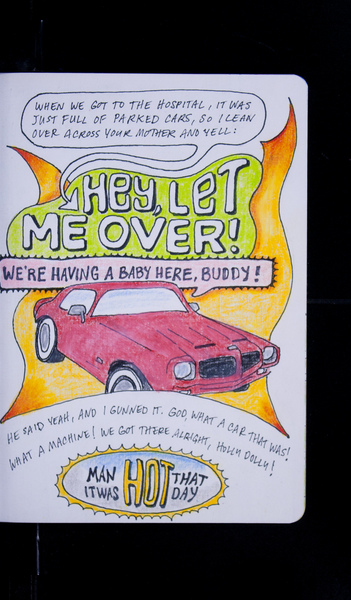 WHEN WE GOT TO THE HOSPITAL, IT WAS
JUST FULL OF PARKED CARS, SO I LEAN
OVER ACROSS YOUR MOTHER AND YELL:
HEY, LET
ME OVER!
WE'RE HAVING A BABY HERE, BUDDY!
HE SAID YEAH, AND I GUNNED IT. GOD, WHAT A CAR THAT WAS!
WHAT A MACHINE! WE GOT THERE ALRIGHT, HOLLY DOLLY!
MAN HOT THAT
IT WAS DAY